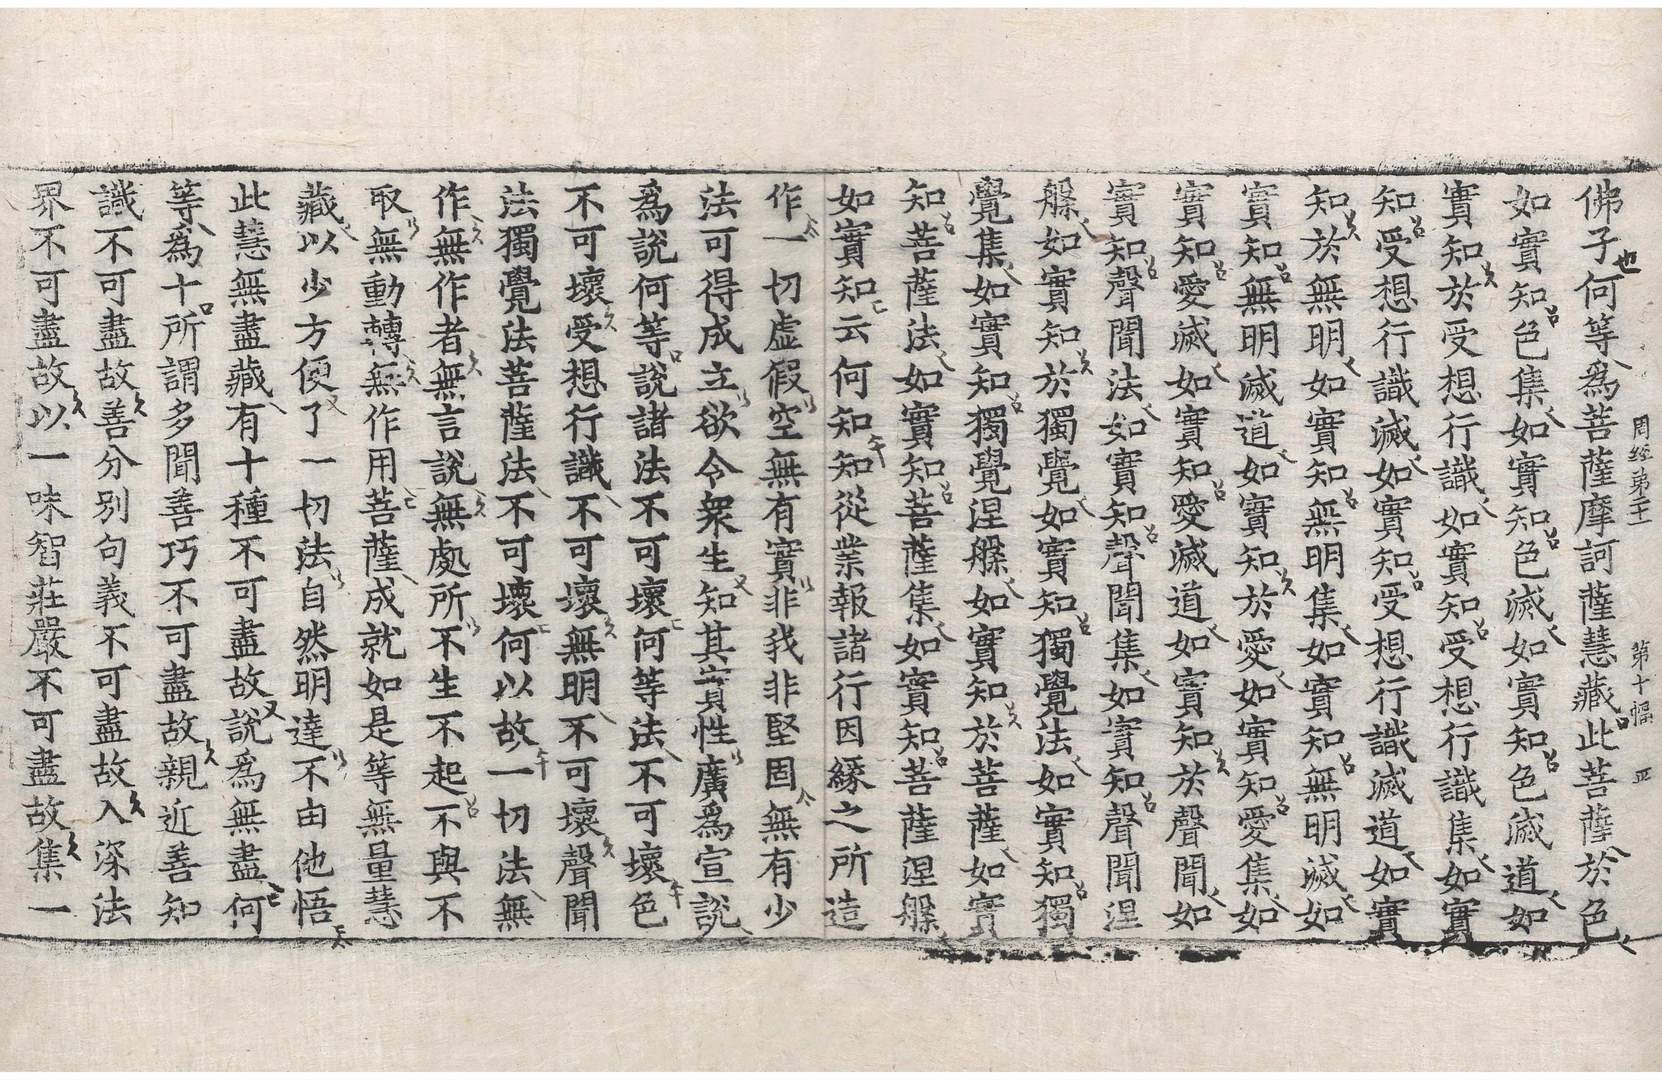 周経第
第十幅
佛子何等爲菩薩摩訶薩慧藏此菩薩於色
如實知色集如實知色滅如實知色滅道如
實知於受想行識如實知受想行識集如實
知受想行識滅如實知受想行識滅道如實
知於無明如實知無明集如實知無明滅如
實知無明滅道如實知於愛如實知愛集如
實知愛滅如實知愛滅道如實知於聲聞如
實知聲聞法如實知聲聞集如實知聲聞涅
槃如實知於獨覺如實知獨覺法如實知獨
覺集如實知獨覺涅槃如實知於菩薩如實
知菩薩法如實知菩薩集如實知菩薩涅槃
如實知云何知知從業報諸行因緣之所造
作一切虛假空無有實非我非堅固無有少
法可得成立欲令衆生知其實性廣爲宣說
爲說何等說諸法不可壞何等法不可壞色
不可壞受想行識不可壞無明不可壞聲聞
法獨覺法菩薩法不可壞何以故一切法無
作無作者無言說無處所不生不起不與不
取無動轉無作用菩薩成就如是等無量慧
藏以少方便了一切法自然明達不由他悟
此慧無盡藏有十種不可盡故說爲無盡何
等爲十所謂多聞善巧不可盡故親近善知
識不可盡故善分別句義不可盡故入深法
界不可盡故以一味智莊嚴不可盡故集一